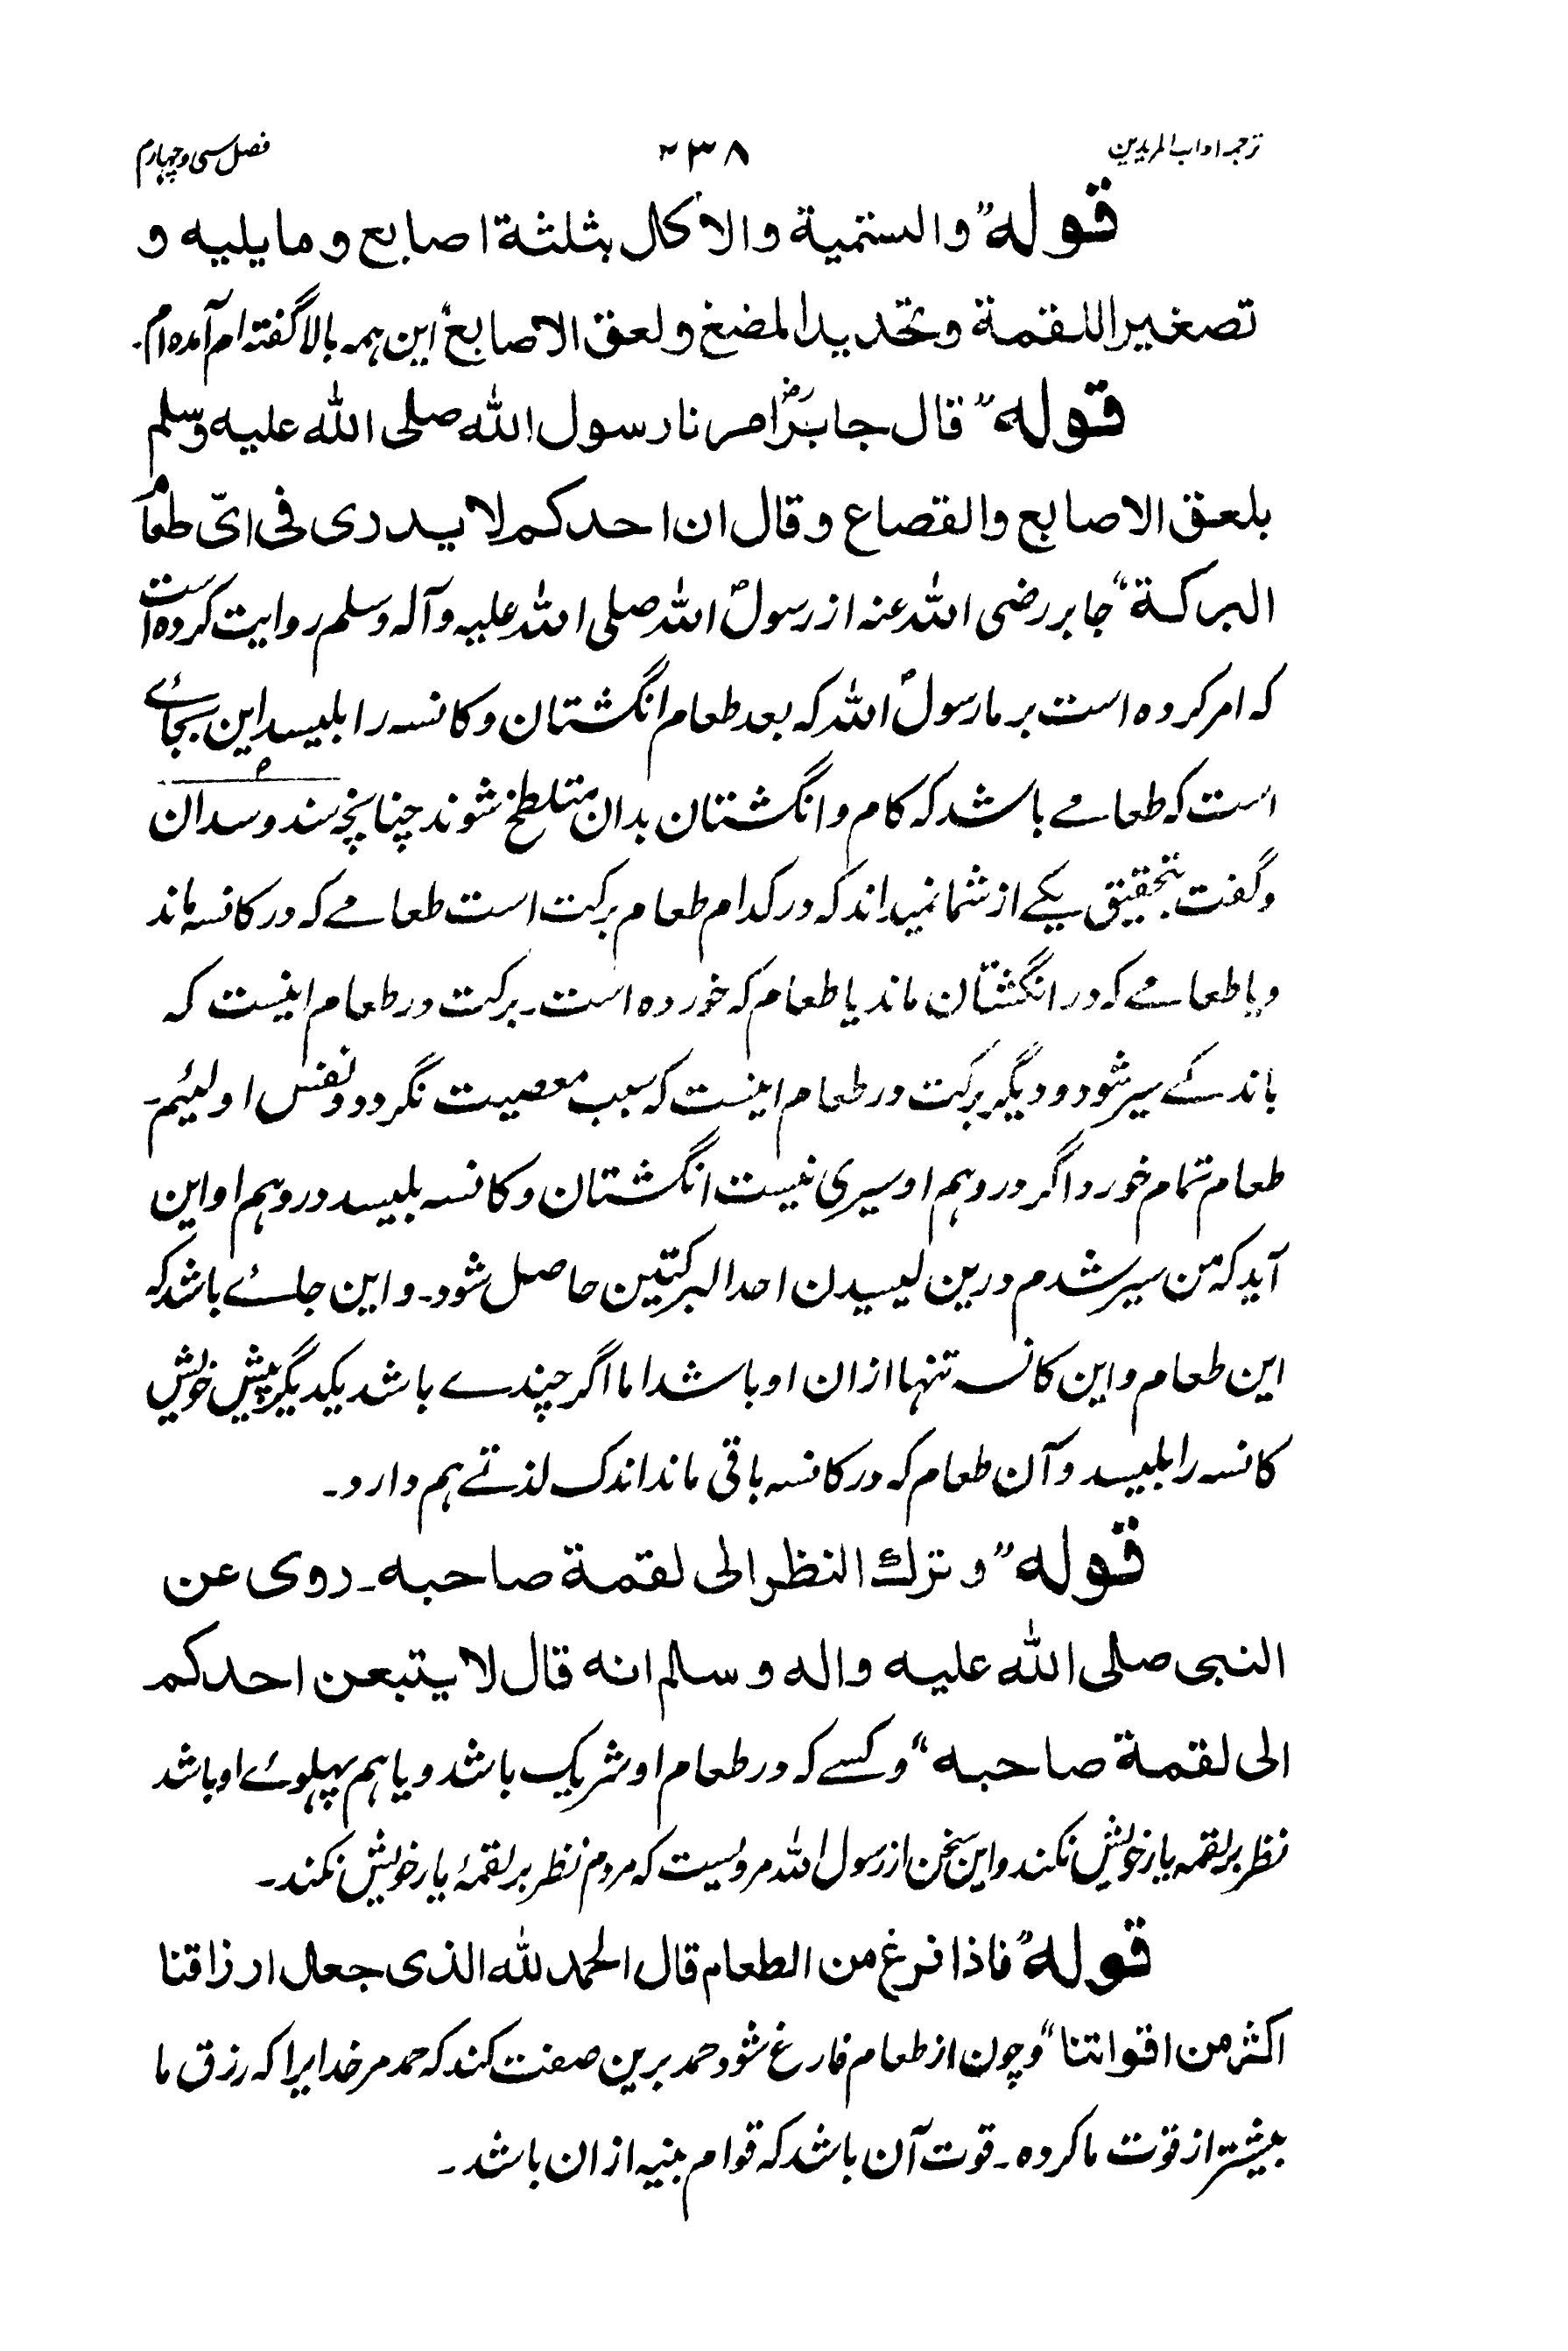 ترجمہ اداب المریدین ۲۳۸ فصل سی و چہارم
قوله ”والستمیة والاکل بثلثة اصابع ومایلیه و
تصغیر اللقمة وتحدید المضغ ولعق الاصابع“ این ہمہ بالا گفتہ ام آمدہ ام۔
قوله ”قال جابرؓ امرنا رسول الله صلی الله علیه وسلم
بلعق الاصابع والقصاع وقال ان احدکم لا یدری فی ایّ طعام
البرکة“ جابر رضی اللہ عنہ از رسولؐ اللہ صلی اللہ علیہ و آلہ وسلم روایت کردہ است
کہ امر کردہ است بر ما رسولؐ اللہ کہ بعد طعام انگشتان و کانسہ را بلیسد این بجائے
است کہ طعامے باشد کہ کام و انگشتان بدان متلطخ شوند چنانچہ سند وسدان
و گفت بتحقیق یکے از شما نمیداند کہ در کدام طعام برکت است طعامے کہ در کانسہ ماند
و یا طعامے کہ در انگشتان ماند یا طعام کہ خوردہ است۔ برکت در طعام اینست کہ
باندکے سیر شود و دیگر برکت در طعام اینست کہ سبب معصیت نگردد و نفس او لئیم۔
طعام تمام خورد اگر در وہم او سیری نیست انگشتان و کانسہ بلیسد در وہم او این
آید کہ من سیر شدم درین لیسیدن احد البرکتین حاصل شود۔ و این جائے باشد کہ
این طعام و این کانسہ تنہا ازان او باشد اما اگر چندے باشد یکدیگر پیش خویش
کانسہ را بلیسد و آن طعام کہ در کانسہ باقی ماند اندک لذتے ہم دارد۔
قوله ”و ترك النظر الی لقمة صاحبه۔ روی عن
النبی صلی الله علیه واله وسلم انه قال لا یتبعن احدکم
الی لقمة صاحبه“ و کسے کہ در طعام او شریک باشد و یا ہم پہلوئے او باشد
نظر بر لقمہ یار خویش نکند و این سخن از رسول اللہ مرویست کہ مردم نظر بر لقمۂ یار خویش نکند۔
قوله ”فاذا فرغ من الطعام قال الحمد لله الذی جعل ارزاقنا
اکثر من اقواتنا“ و چون از طعام فارغ شود حمد برین صفت کند کہ حمد مر خدایرا کہ رزق ما
بیشتر از قوت ما کردہ۔ قوت آن باشد کہ قوام بنیہ ازان باشد۔